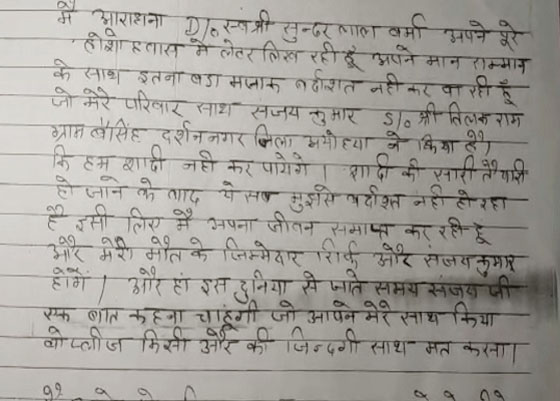 मै आराधना D/o स्व श्री सुन्दर लाल वर्मा अपने पूरे
होशो हवास मे लेटर लिख रही हूँ अपने मान सम्मान
के साथ इतना बडा मजाक बर्दाशत नही कर पा रही हूँ
जो मेरे परिवार साथ संजय कुमार S/o श्री तिलक राम
ग्राम बैसिंह दर्शन नगर जिला अयोध्या ने किया है,
कि हम शादी नही कर पायेगे । शादी की सारी तैयारी
हो जाने के बाद ये सब मुझसे बर्दाश्त नही हो रहा
है इसी लिए मै अपना जीवन समाप्त कर रही हूँ
और मेरी मौत के जिम्मेदार सिर्फ और संजय कुमार
होगें । और हां इस दुनिया से जाते समय संजय जी
एक बात कहना चाहूंगी जो आपने मेरे साथ किया
वो प्लीज किसी और की जिन्दगी साथ मत करना।